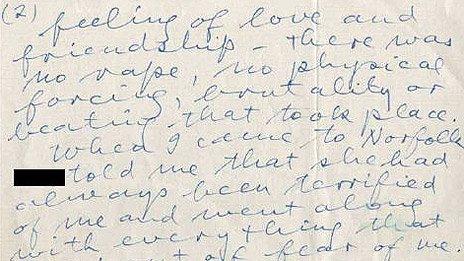 (2) feeling of love and
friendship – there was
no rape, no physical
forcing, brutality or
beating that took place.
When I came to Norfolk
told me that she had
always been terrified
of me and went along
with everything that
out of fear of me.